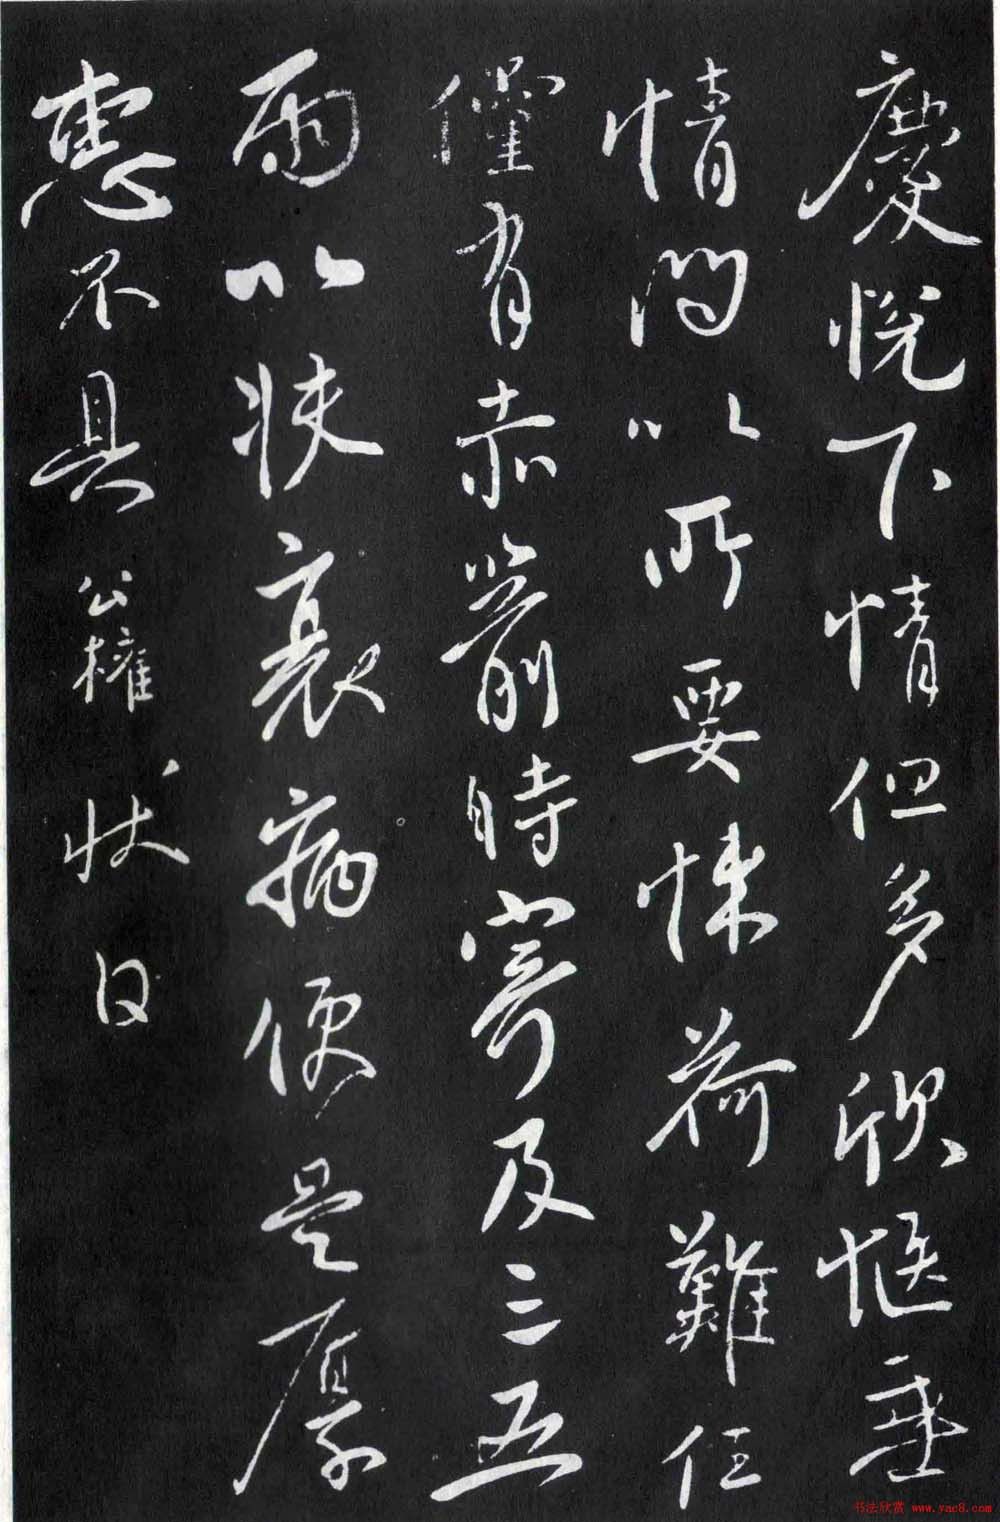 慶悅下情但多欣愜垂
情問以所要悚荷難任
儻有赤箭時寄及三五
兩以扶衰病便是厚
惠不具公權狀白
书法欣赏 www.yac8.com